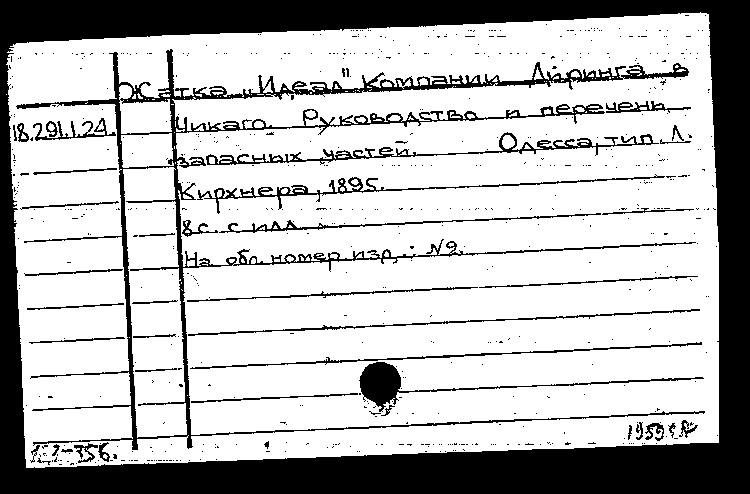 Жатка „Идеал" Компании Диринга в
18.291.1.24.
Чикаго. Руководство и перечень
запасных частей. Одесса, тип. Л.
Кирхнера, 1895.
8 с. с илл.
На обл. номер изд.: №2.
-356.
1959